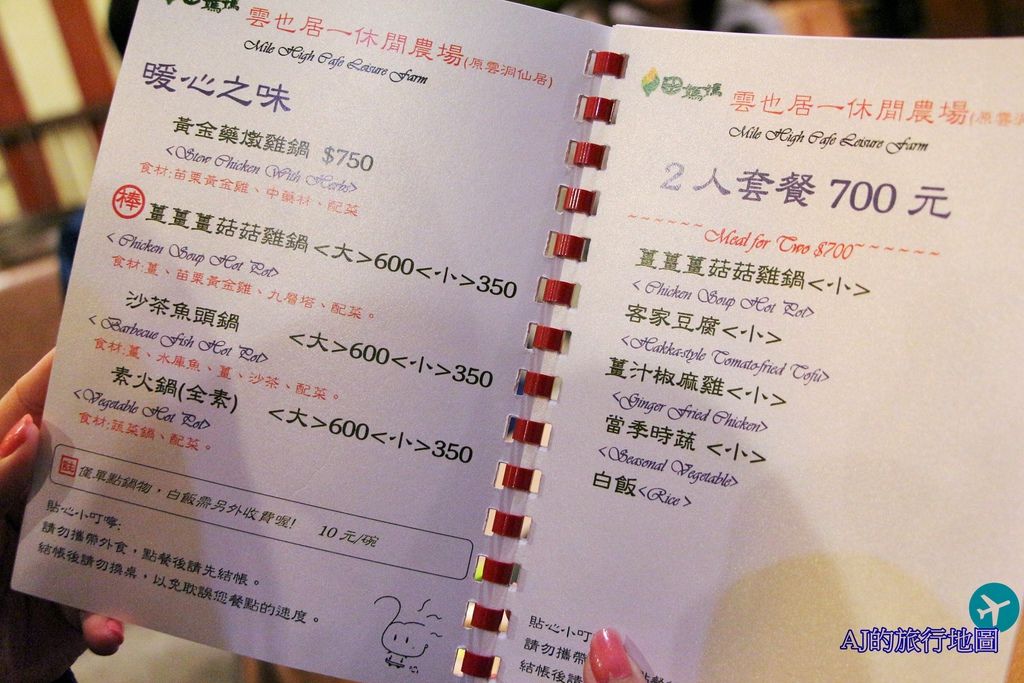 雲也居一休閒農場(原雲洞仙居)
Mile High Cafe Leisure Farm
暖心之味
黃金藥燉雞鍋 $750
<Stew Chicken With Herbs>
食材:苗栗黃金雞、中藥材、配菜
棒 薑薑薑菇菇雞鍋 <大>600<小>350
< Chicken Soup Hot Pot>
食材:薑、苗栗黃金雞、九層塔、配菜。
沙茶魚頭鍋 <大>600<小>350
< Barbecue Fish Hot Pot>
食材:薑、水庫魚、薑、沙茶、配菜。
素火鍋(全素) <大>600<小>350
<Vegetable Hot Pot>
食材:蔬菜鍋、配菜。
僅單點鍋物，白飯需另外收費喔! 10 元/碗
貼心小叮嚀:
請勿攜帶外食，點餐後請先結帳。
結帳後請勿換桌，以免耽誤您餐點的速度。
雲也居一休閒農場(原雲洞
Mile High Cafe Leisure Farm
2 人套餐 700 元
~~~~~~Meal for Two $700~~~~~~
薑薑薑菇菇雞鍋<小>
< Chicken Soup Hot Pot>
客家豆腐<小>
<Hakka-style Tomato-fried Tofu>
薑汁椒麻雞<小>
<Ginger Fried Chicken>
當季時蔬 <小>
<Seasonal Vegetable>
白飯<Rice >
貼心小叮
請勿攜帶
結帳後請
AJ的旅行地圖